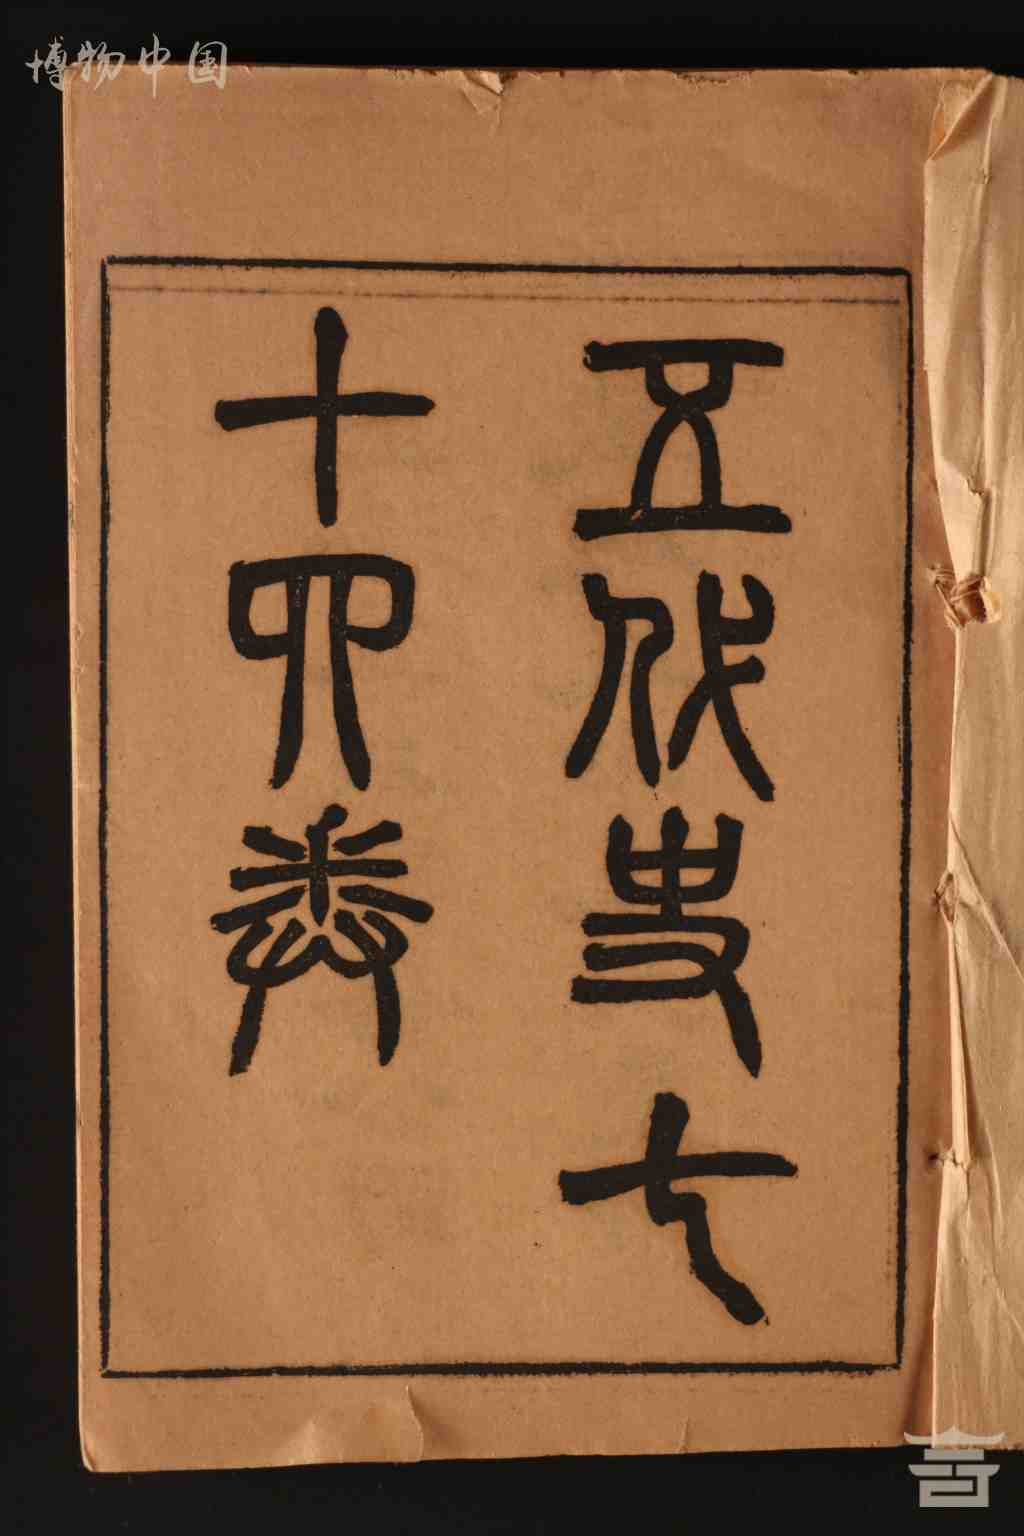 博物中国
五代史七
十四卷